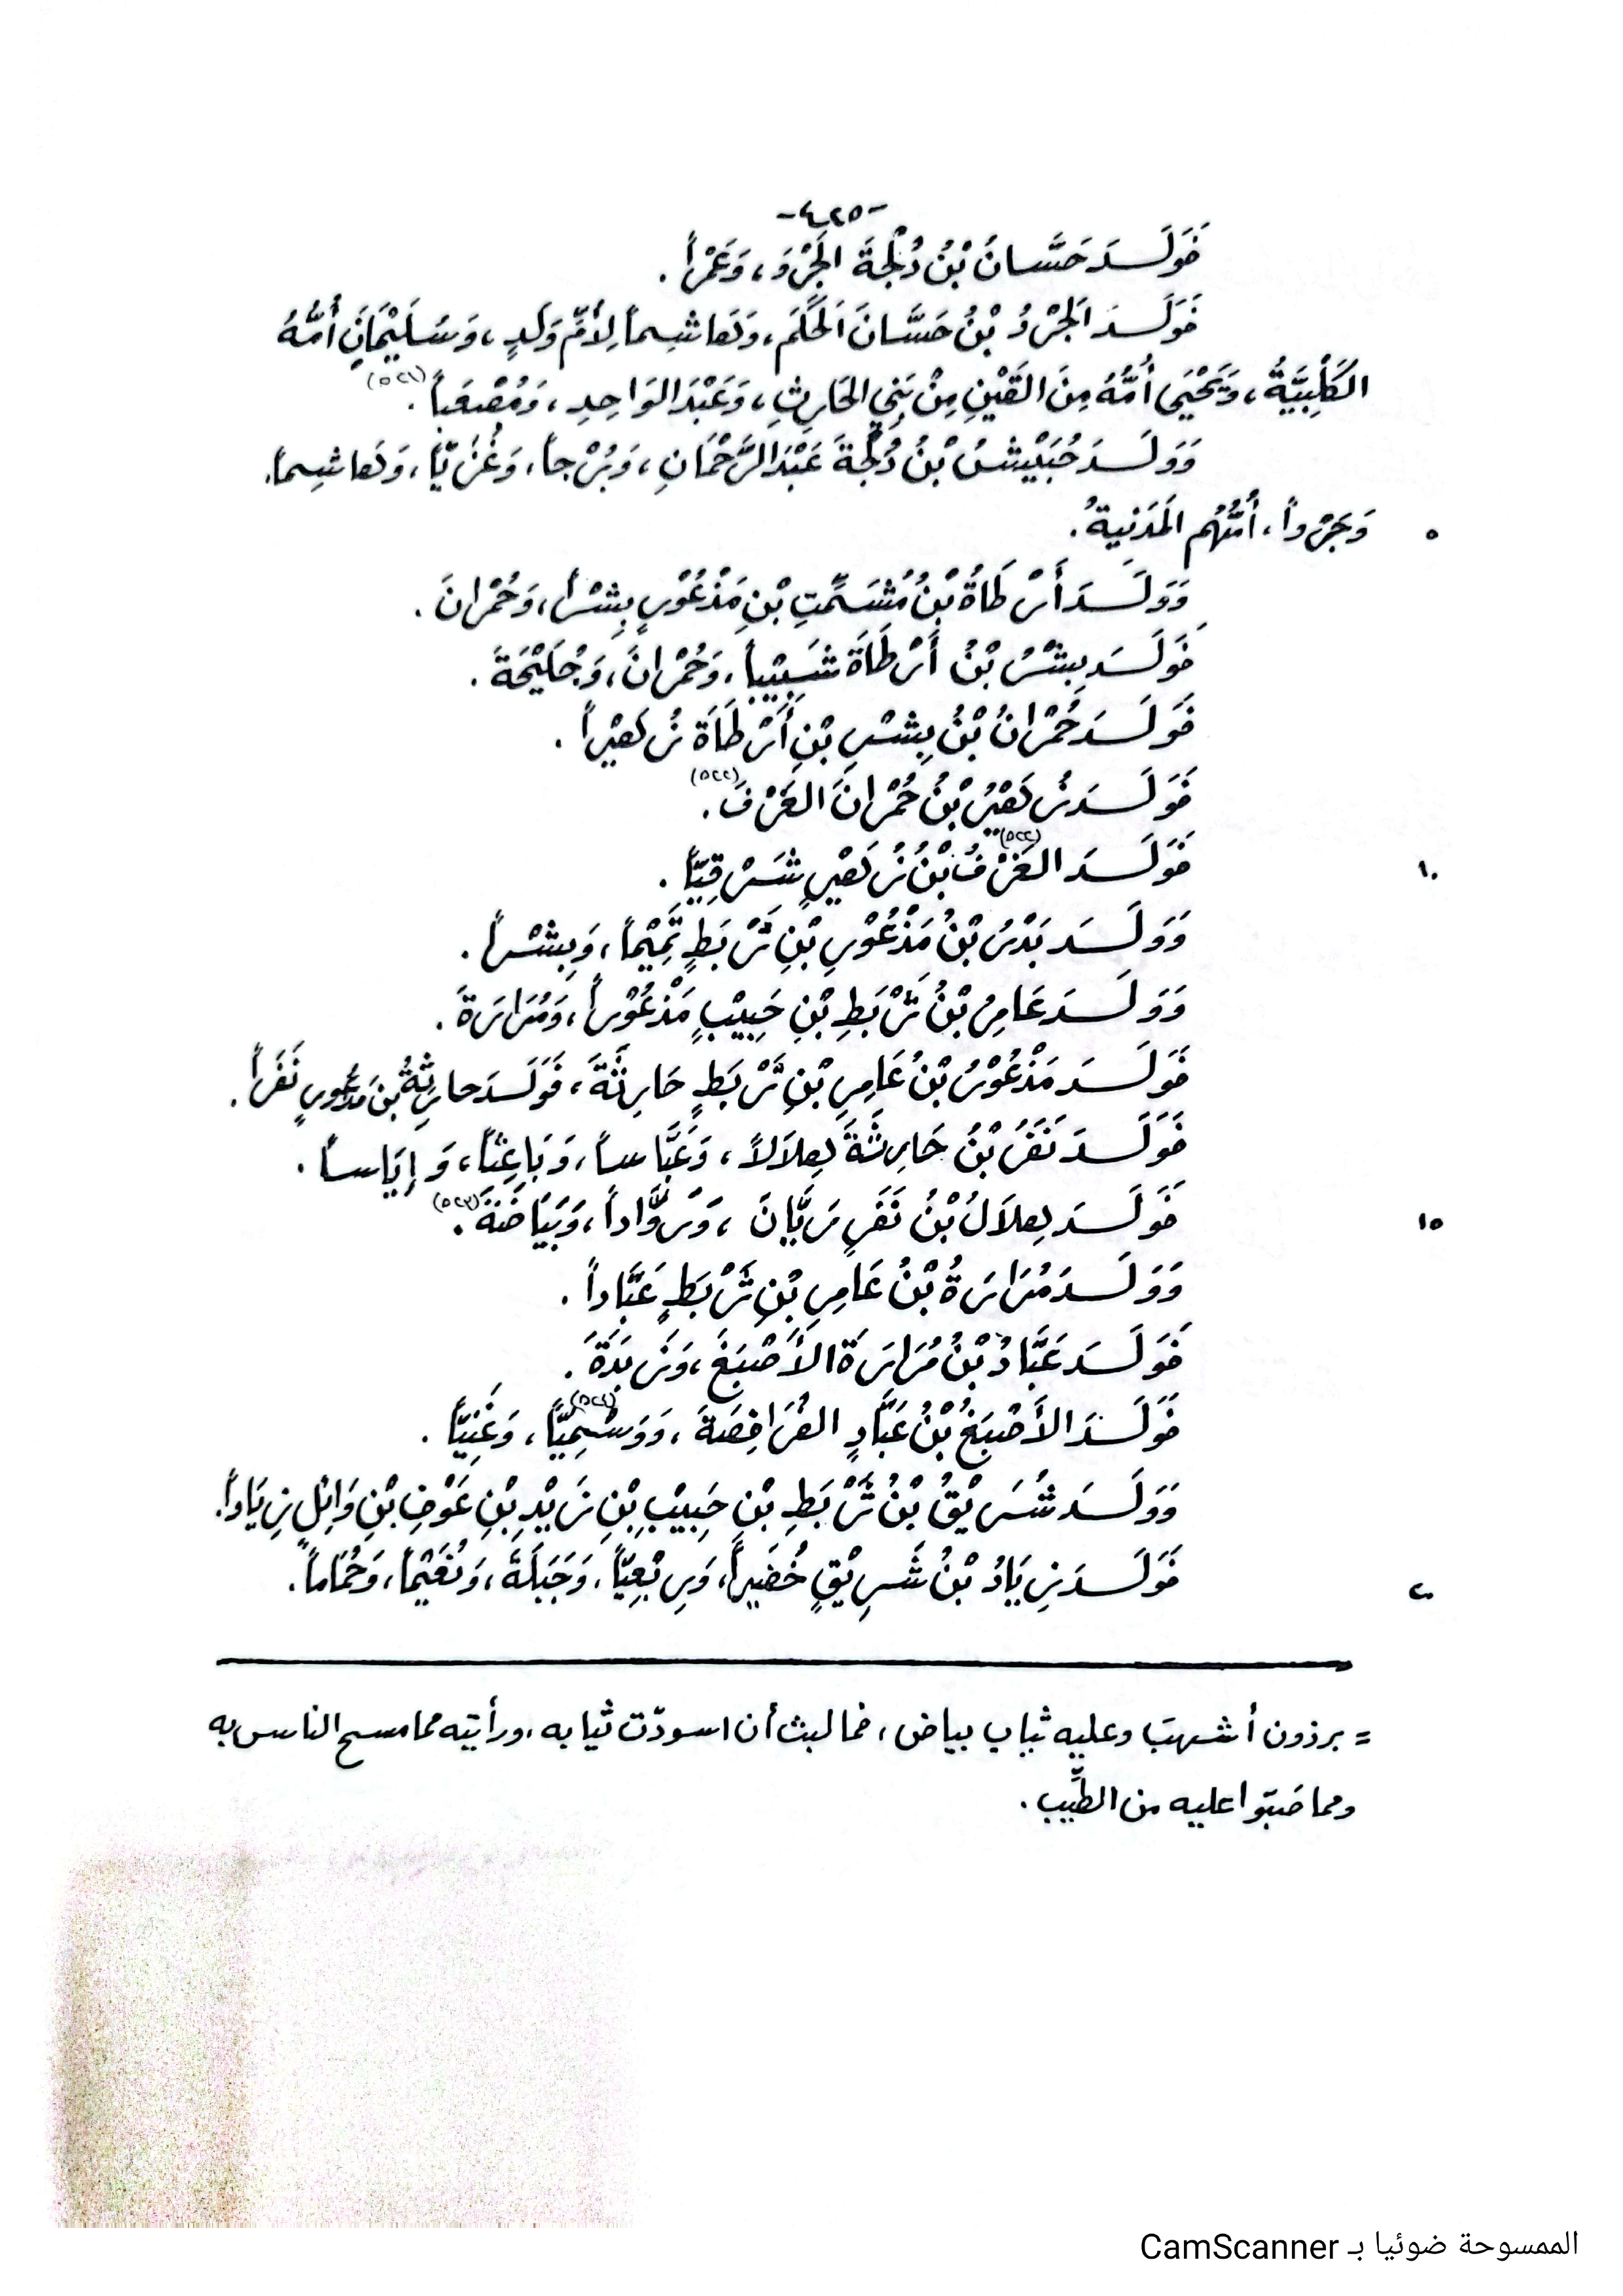 -٤٢٥-
فَوَلَـدَ حَسَّانُ بْنُ دُلْجَةَ الجَرْوَ، وَعَمْراً.
فَوَلَـدَ الجَرْدُ بْنُ حَسَّانَ الحَكَمَ، وَهَاشِماً لِأُمِّ وَلَدٍ، وَسُلَيْمَانَ أُمُّهُ
الكَلْبِيَّةُ، وَيَحْيَى أُمُّهُ مِنَ القَيْنِ مِنْ بَنِي الحَارِثِ، وَعَبْدَ الوَاحِدِ، وَمُصْعَباً(٥٢١).
وَوَلَـدَ حُبَيْشُ بْنُ دُلْجَةَ عَبْدَ الرَّحْمَانِ، وَبُرْجاً، وَغُزَيّاً، وَهَاشِماً.
٥ وَجَرْواً، أُمُّهُم المَدَنِيةُ.
وَوَلَـدَ أَرْطَاةُ بْنُ مُشَمِّتِ بْنِ مَذْعُوْرٍ بِشْراً، وَحُمْرانَ.
فَوَلَـدَ بِشْرُ بْنُ أَرْطَاةَ شَبِيْباً، وَحُمْرانَ، وَجُلَيْحَةَ.
فَوَلَـدَ حُمْرانُ بْنُ بِشْرِ بْنِ أَرْطَاةَ زُهَيْراً.
فَوَلَـدَ زُهَيْرُ بْنُ حُمْرانَ الغَرْفَ(٥٢٢).
١٠ فَوَلَـدَ الغَرْفُ(٥٢٢) بْنُ زُهَيْرٍ شَرْقِيّاً.
وَوَلَـدَ بَدْرُ بْنُ مَذْعُوْرِ بْنِ ثَرْبَطٍ تَمِيْماً، وَبِشْراً.
وَوَلَـدَ عَامِرُ بْنُ ثَرْبَطِ بْنِ حَبِيْبٍ مَذْعُوْراً، وَمُرَارَةَ.
فَوَلَـدَ مَذْعُوْرُ بْنُ عَامِرِ بْنِ ثَرْبَطٍ حَارِثَةَ، فَوَلَـدَ حارِثَةُ بْنُ مَذْعُورٍ نَفَراً.
فَوَلَـدَ نَفَرُ بْنُ حَارِثَةَ هِلاَلاً، وَعَبَّاساً، وَبَاعِثاً، وَإِيَاساً.
١٥ فَوَلَـدَ هِلاَلُ بْنُ نَفَرٍ رَبَّانَ، وَرَوَّاداً، وَبَيَاضَةَ(٥٢٣).
وَوَلَـدَ مُرَارَةُ بْنُ عَامِرِ بْنِ ثَرْبَطٍ عَبَّاداً.
فَوَلَـدَ عَبَّادُ بْنُ مُرَارَةَ الأَصْبَغَ، وَزَبَدَةَ.
فَوَلَـدَ الأَصْبَغُ بْنُ عَبَّادٍ الفُرَافِصَةَ، وَوَسْمِيّاً(٥٢٤)، وَغَنِيّاً.
وَوَلَـدَ شُرَيْقُ بْنُ ثَرْبَطِ بْنِ حَبِيْبِ بْنِ زَيْدِ بْنِ عَوْفِ بْنِ وَائِلٍ زِيَاداً.
٢٠ فَوَلَـدَ زِيَادُ بْنُ شَرِيْقٍ خُضَيراً، وَرِبْعِيّاً، وَجَبَلَةَ، وَنُعَيْماً، وَحُمَاماً.
= برذون أشهبَ وعليه ثياب بياض، فما لبث أن اسودّت ثيابه، ورأيته مما مسح الناس به
ومما صَبّوا عليه من الطِّيب.
الممسوحة ضوئيا بـ CamScanner